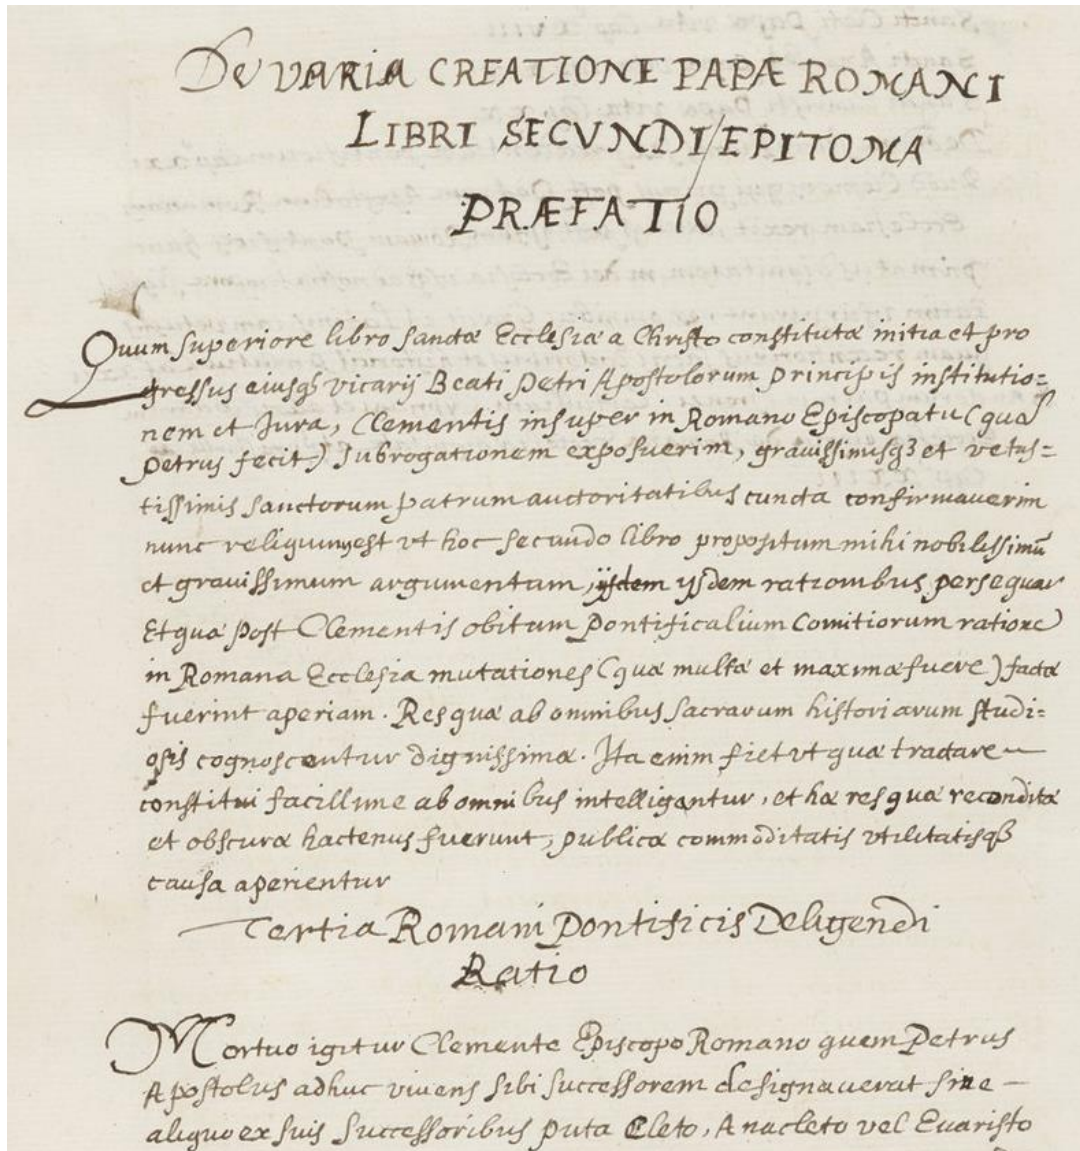 De VARIA CREATIONE PAPÆ ROMANI
LIBRI SECVNDI/EPITOMA
PRÆFATIO
Quum superiore libro sanctæ Ecclesiæ a Christo constitutæ initia et pro
gressus eiusqꝫ vicarij Beati Petri Apostolorum principis institutio=
nem et Jura, Clementis insuper in Romano Episcopatu (quã
Petrus fecit) subrogationem exposuerim, grauissimisqꝫ et vetus=
tissimis sanctorum patrum auctoritatibus cuncta confirmauerim
nunc reliquum est vt hoc secundo libro propositum mihi nobilissimũ
et grauissimum argumentum, ijsdem rationibus persequar
Et quæ post Clementis obitum Pontificalium Comitiorum ratione
in Romana Ecclesia mutationes (quæ multæ et maximæ fuere) factæ
fuerint aperiam. Res quæ ab omnibus sacrarum historiarum studi=
osis cognoscentur dignissimæ. Ita enim fiet vt quæ tractare
constitui facillime ab omnibus intelligantur, et hæ res quæ reconditæ
et obscuræ hactenus fuerunt, publicæ commoditatis vtilitatisqꝫ
causa aperientur
Tertia Romani Pontificis Deligendi
Ratio
Mortuo igitur Clemente Episcopo Romano quem Petrus
Apostolus adhuc viuens sibi successorem designauerat sine
aliquo ex suis successoribus puta Cleto, Anacleto vel Euaristo